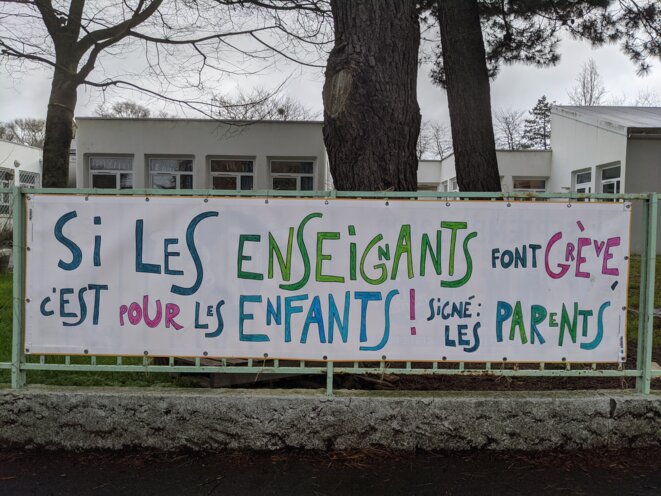 Si LES ENSEIGNANTS FONT GRÈVE,
C'EST POUR LES ENFANTS ! SIGNÉ : LES PARENTS